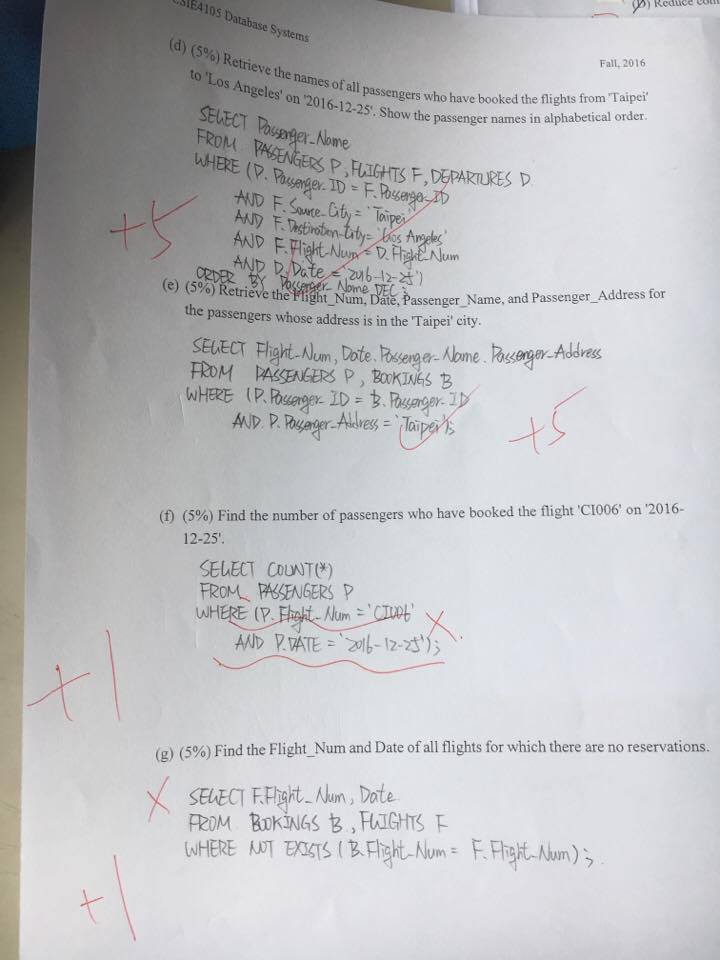 CSIE4105 Database Systems
Reduce
Fall, 2016
(d) (5%) Retrieve the names of all passengers who have booked the flights from 'Taipei'
to 'Los Angeles' on '2016-12-25'. Show the passenger names in alphabetical order.
SELECT Passenger_Name
FROM PASSENGERS P, FLIGHTS F, DEPARTURES D
WHERE (P. Passenger_ID = F. Passenger_ID
AND F. Source_City = 'Taipei'
AND F. Destination_City = 'Los Angeles'
AND F. Flight_Num = D. Flight_Num
AND D. Date = '2016-12-25')
ORDER BY Passenger_Name DEC;
+5
(e) (5%) Retrieve the Flight_Num, Date, Passenger_Name, and Passenger_Address for
the passengers whose address is in the 'Taipei' city.
SELECT Flight_Num, Date. Passenger_Name. Passenger_Address
FROM PASSENGERS P, BOOKINGS B
WHERE (P. Passenger_ID = B. Passenger_ID
AND. P. Passenger_Address = 'Taipei');
+5
(f) (5%) Find the number of passengers who have booked the flight 'CI006' on '2016-
12-25'.
SELECT COUNT(*)
FROM PASSENGERS P
WHERE (P. Flight_Num = 'CI006'
AND P.DATE = '2016-12-25');
+1
(g) (5%) Find the Flight_Num and Date of all flights for which there are no reservations.
SELECT F.Flight_Num, Date
FROM BOOKINGS B, FLIGHTS F
WHERE NOT EXISTS (B.Flight_Num = F.Flight_Num);
+1